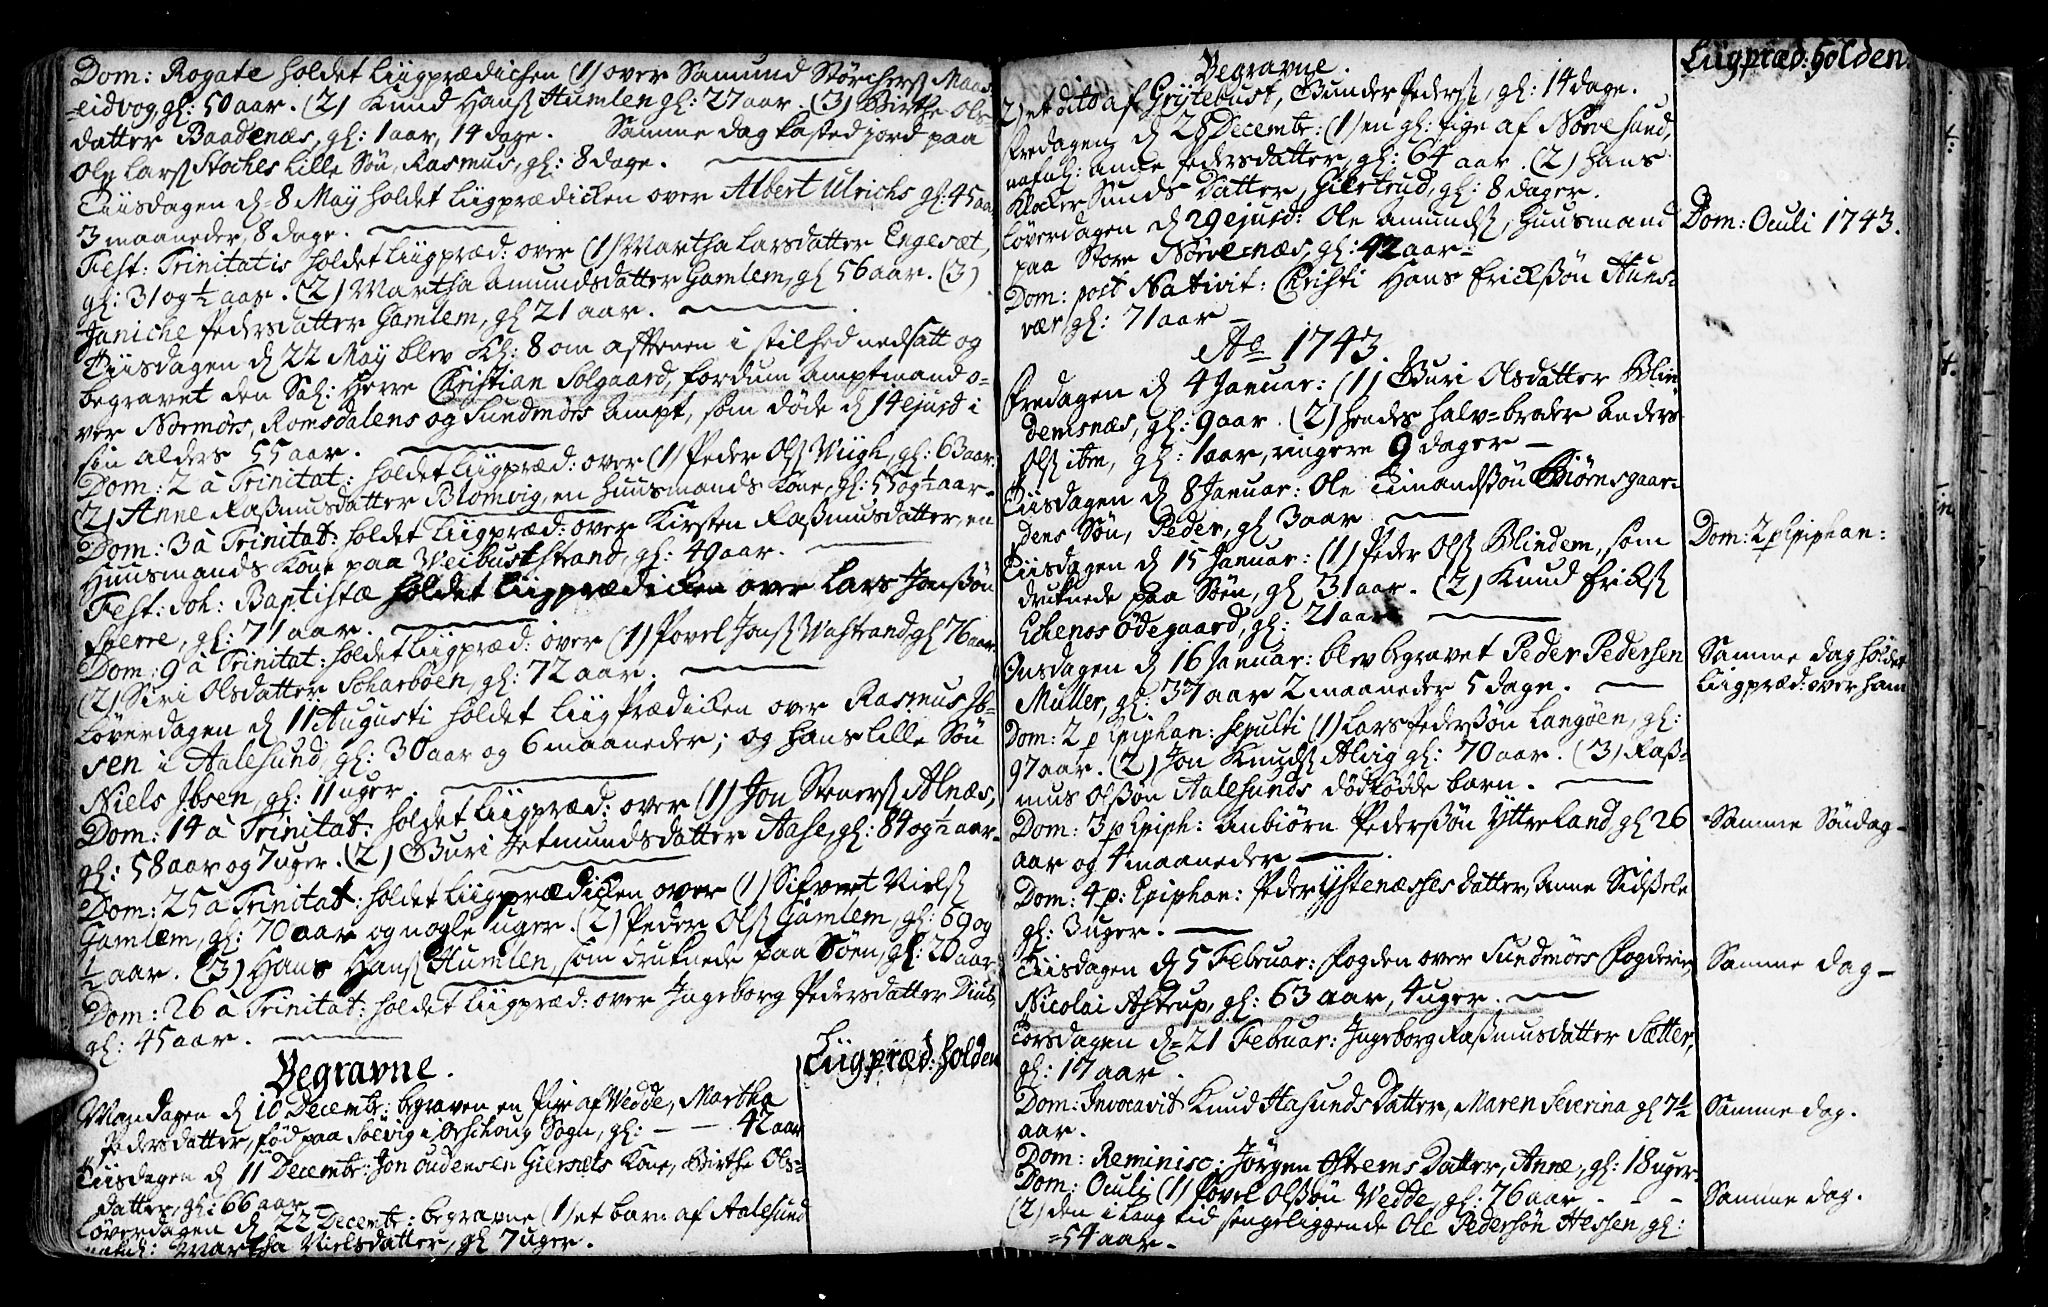 Dom: Rogate holdet Liigprædichen (1) over Samund Störchers Maas-
=eidvog, gl: 50 aar. (2) Knud Hanß Humlen gl: 27 aar. (3) Birthe Ols-
datter Baadenæs, gl: 1 aar, 14 dage. Samme dag kasted jord paa
Ole Larß Stoches lille Sön, Rasmus, gl: 8 dage.
Tiisdagen d 8 May holdet Liigprædicken over Albert Ulrichs gl: 45 aar
3 maaneder, 8 dage.
Fest: Trinitatis holdet Liigpræd: over (1) Martha Larsdatter Engeset,
gl: 31 og ½ aar. (2) Martha Amundsdatter Gamlem, gl 56 aar. (3)
Janiche Pedersdatter Gamlem, gl 21 aar.
Tiisdagen d 22 May blev Kl: 8 om aftenen i stilhed nedsatt og
begravet den Sal: Herre Christian Solgaard, fordum Amptmand o-
ver Normørs, Romsdalens og Sundmørs Ampt, som døde d 14 ejusd i
sin alders 55 aar.
Dom: 2 à Trinitat: holdet Liigpræd: over (1) Peder Olß Wiigh, gl: 63 aar.
(2) Anne Raßmusdatter Blomvig, en huusmands Kone, gl: 55 og ½ aar.
Dom: 3 à Trinitat: holdet Liigpræd: over Kirsten Raßmusdatter, en
Huusmands Kone paa VeibustStrand, gl: 49 aar.
Fest: Joh: Baptistæ holdet Liigprædicken over Lars Jonßön
Sperre, gl: 71 aar.
Dom: 9 à Trinitat: holdet Liigpræd: over (1) Povel Jonß Wastrand, gl 76 aar
(2) Siri Olsdatter Scharböen, gl: 72 aar.
Löverdagen d 11 Augusti holdet LiigPrædicken over Rasmus Jb-
sen i Aalesund, gl: 30 aar og 6 maaneder; og hans lille Sön
Niels Jbsen, gl: 11 uger.
Dom: 14 à Trinitat: holdet Liigpræd: over (1) Jon Stenerß Alnæs,
gl: 58 aar og 7 uger. (2) Guri Jetmundsdatter Aase, gl: 84 og ½ aar.
Dom: 25 à Trinitat: holdet Liigprædicken over (1) Sifvert Nielß
Gamlem, gl: 70 aar og nogle uger. (2) Peder Olß Gamlem, gl: 69 og
½ aar. (3) Hans Hanß Humlen, som druknede paa Söen, gl: 20 aar.
Dom: 26 à Trinitat: holdet Liigpræd: over Jngeborg Pedersdatter Dius,
gl: 45 aar.
Begravne.
Liigpræd: holden
Mandagen d 10 Decembr: begraven en Pige af Wedde, Martha
Pedersdatter, fød paa Solvig i Orschoug Sogn, gl: — — 42 aar
Tiisdagen d 11 Decembr: Jon Oudensen Giersets Kone, Birthe Ols-
datter, gl: 66 aar
Löverdagen d 22 Decembr: begravne (1) et barn af Aalesund
Martha Nielsdatter, gl 7 uger.
Begravne.
Liigpræd: holden.
2) et dito af Grytebust, Gunder Pederß, gl: 14 dage.
Fredagen d 28 Decembr: (1) en gl: Pige af Nørvesund,
nafnl: Anne Pedersdatter, gl: 64 aar. (2) Hans
Klocker Sunds Datter, Giertrud, gl: 8 dager.
Löverdagen d 29 ejusd: Ole Amundß, huusmand
paa Store Nørvenæs, gl: 42 aar.
Dom: Oculi 1743.
Dom: post Nativit: Christi Hans Erickßön Hunds-
vær, gl: 71 aar
Ao 1743.
Fredagen d 4 Januar: (1) Guri Olsdatter Blin-
demsnæs, gl: 9 aar. (2) hendes halv=broder Anders
Olß ibm, gl: 1 aar, ringere 9 dager
Tiisdagen d 8 Januar: Ole Timandßön Biørnsgaar-
dens Sön, Peder, gl 3 aar
Tiisdagen d 15 Januar: (1) Peder Olß Blindem, som
druknede paa Söen, gl 31 aar. (2) Knud Erickß
Echenos ödegaard, gl: 21 aar
Dom: 2 p Epiphan:
Onsdagen d 16 Januar: blev begravet Peder Pedersen
Müller, gl: 37 aar 2 maaneder 5 dage.
Samme dag holdet
Liigpræd: over ham
Dom: 2 p Epiphan: sepulti (1) Lars Pederßön Langöen, gl:
97 aar. (2) Jon Knudß Alvig gl: 70 aar. (3) Raß-
mus Olßön Aalesunds dödfödde barn.
Dom: 3 p Epiph: Anbiørn Pederßön Ytterland, gl 26
aar og 4 maaneder
Samme Söndag
Dom: 4 p: Epiphan: Peder Ystenæsses datter, Anne Sidßele
gl: 3 uger.
Tiisdagen d 5 Februar: Fogden over Sundmörs Fogderie
Nicolai Astrup, gl: 63 aar, 4 uger.
Samme dag
Torsdagen d 21 Februar: Jngeborg Raßmusdatter Sætter,
gl: 17 aar.
Dom: Invocavit Knud Hasunds Datter, Maren Severina gl 7½
aar.
Samme dag.
Dom: Reminisc: Jørgen Østrems Datter, Anne, gl: 18 uger.
Dom: Oculi (1) Povel Olßön Wedde, gl: 76 aar
Samme dag.
(2) den i lang tid sengeliggende Ole Pedersön Hessen, gl:
=54 aar.